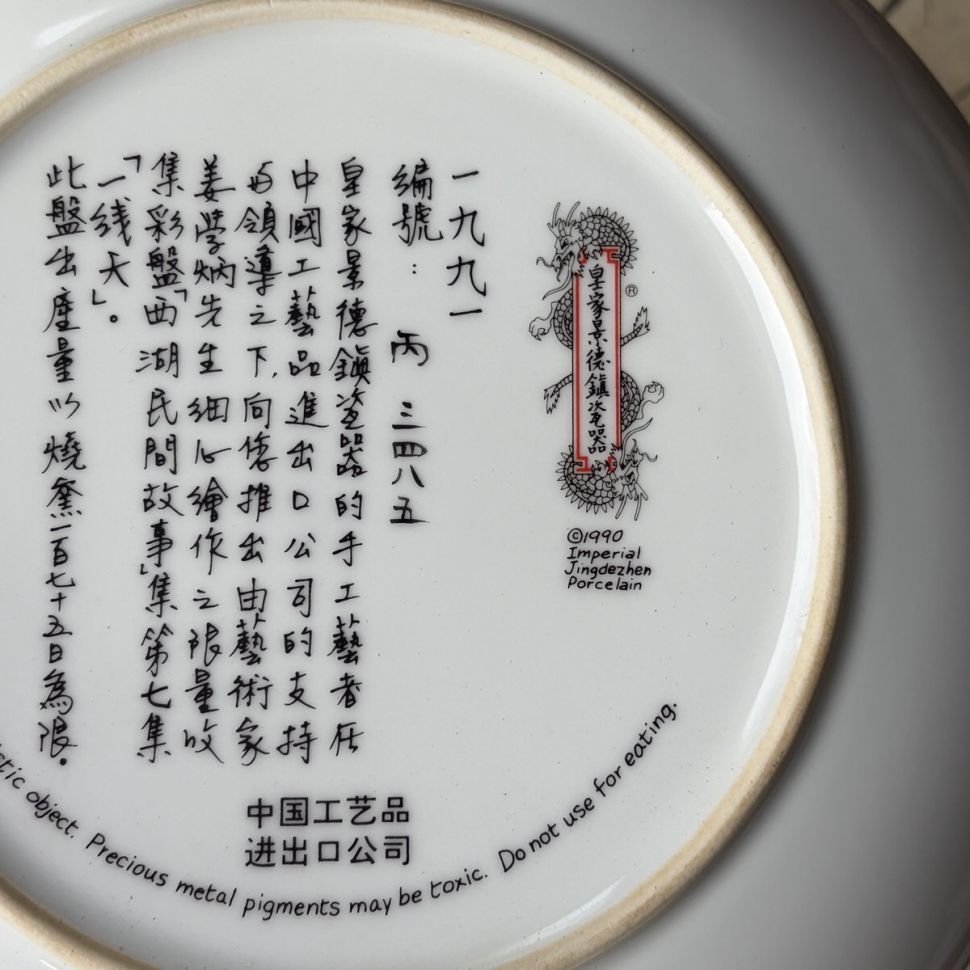 一九九一
編號：丙 三四八五
皇家景德鎮瓷器的手工藝者在
中國工藝品進出口公司的支持
与領導之下,向您推出由藝術家
姜學炳先生细心繪作之限量收
集彩盤「西湖民間故事」集第七集
「一线天」。
此盤出產量以燒窯一百七十五日為限。
皇家景德鎮瓷器
®
©1990
Imperial
Jingdezhen
Porcelain
中国工艺品
进出口公司
object. Precious metal pigments may be toxic. Do not use for eating.